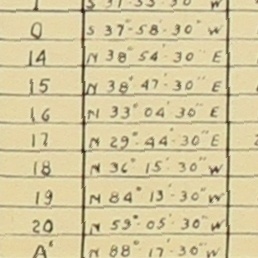 Q S 37° 58' 30" W
14 N 38° 54' 30" E
15 N 38° 47' 30" E
16 N 33° 04' 30" E
17 N 29° 44' 30" E
18 N 36° 15' 30" W
19 N 84° 13' 30" W
20 N 59° 05' 30" W
A' N 88° 17' 30" W